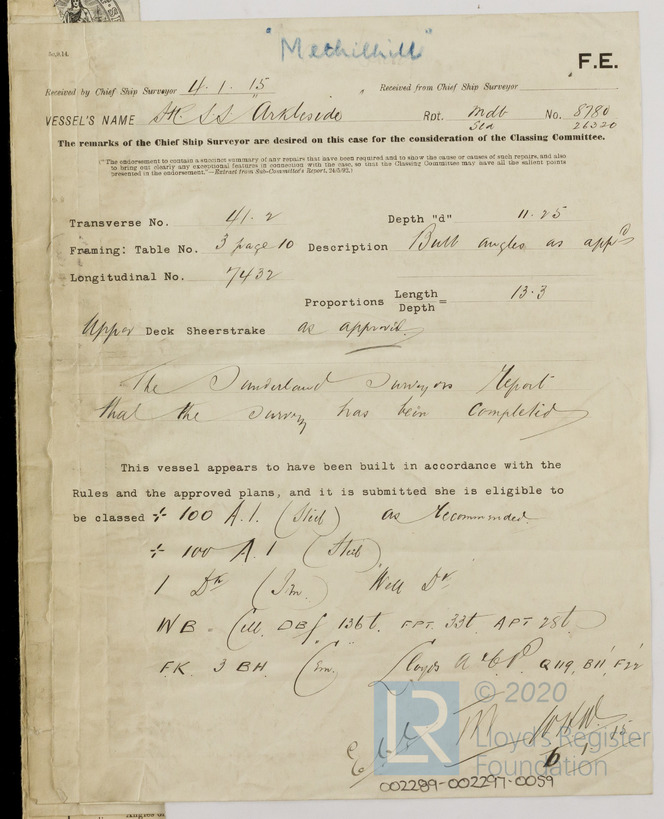 "Methilhill"
F.E.
Received by Chief Ship Surveyor 4.1.15 Received from Chief Ship Surveyor
VESSEL'S NAME SS "Arkleside Rpt. Mdb No. 8780
Sld 26320
The remarks of the Chief Ship Surveyor are desired on this case for the consideration of the Classing Committee.
("The endorsement to contain a succinct summary of any repairs that have been required and to show the cause or causes of such repairs, and also
to bring out clearly any exceptional features in connection with the case, so that the Classing Committee may have all the salient points
presented in the endorsement."—Extract from Sub-Committee's Report, 24/5/92.)
Transverse No. 41.2 Depth "d" 11.25
Framing: Table No. 3 page 10 Description Bulb angles as appd
Longitudinal No. 7432
Proportions Length
Depth = 13.3
Upper Deck Sheerstrake as approved
The Sunderland Surveyors Report
that the survey has been completed
This vessel appears to have been built in accordance with the
Rules and the approved plans, and it is submitted she is eligible to
be classed ✠ 100 A.1. (Steel) as Recommended
✠ 100 A.1 (Steel)
1 Dk (Irn.) Well Dk
WB = Cell DB 136t. FPT. 33t APT 28t
FK 3 BH. Lloyds A & CP. Q119, B11', F22'
15
LR © 2020
Lloyd's Register
Foundation
002289-002297-0059